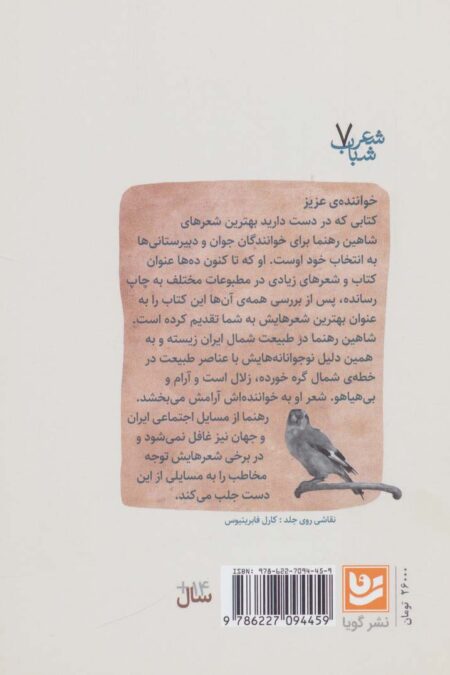 شعر
شباب ۷
خواننده‌ی عزیز
کتابی که در دست دارید بهترین شعرهای
شاهین رهنما برای خوانندگان جوان و دبیرستانی‌ها
به انتخاب خود اوست. او که تا کنون ده‌ها عنوان
کتاب و شعرهای زیادی در مطبوعات مختلف به چاپ
رسانده، پس از بررسی همه‌ی آن‌ها این کتاب را به
عنوان بهترین شعرهایش به شما تقدیم کرده است.
شاهین رهنما در طبیعت شمال ایران زیسته و به
همین دلیل نوجوانانه‌هایش با عناصر طبیعت در
خطه‌ی شمال گره خورده، زلال است و آرام و
بی‌هیاهو. شعر او به خواننده‌اش آرامش می‌بخشد.
رهنما از مسایل اجتماعی ایران
و جهان نیز غافل نمی‌شود و
در برخی شعرهایش توجه
مخاطب را به مسایلی از این
دست جلب می‌کند.
نقاشی روی جلد : کارل فابریتیوس
ISBN: 978-622-7094-45-9
9 786227 094459
+۱۴
سال
نشر گویا
۲۶۰۰۰ تومان